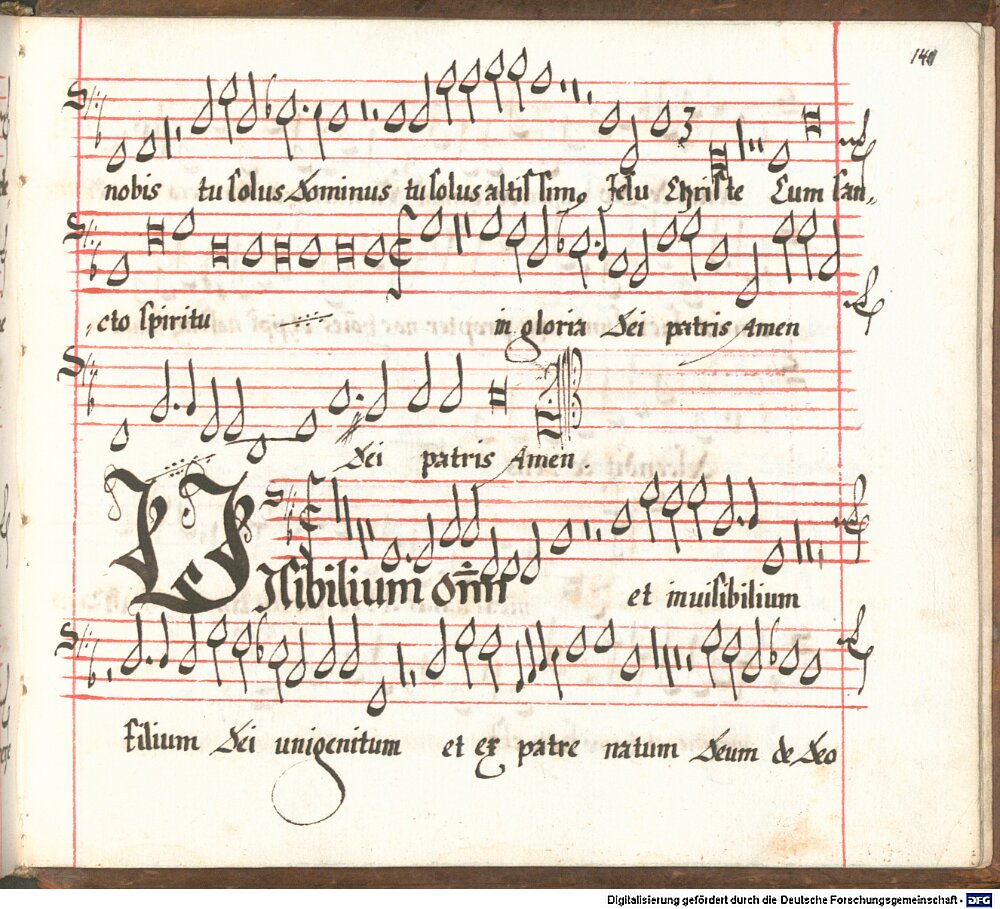 140
nobis tu solus Dominus tu solus altissim9 Jesu Christe Cum san„
„cto spiritu in gloria Dei patris Amen
Dei patris Amen.
ISibilium om̄ et inuisibilium
filium Dei unigenitum et ex patre natum Deum de Deo
Digitalisierung gefördert durch die Deutsche Forschungsgemeinschaft - DFG